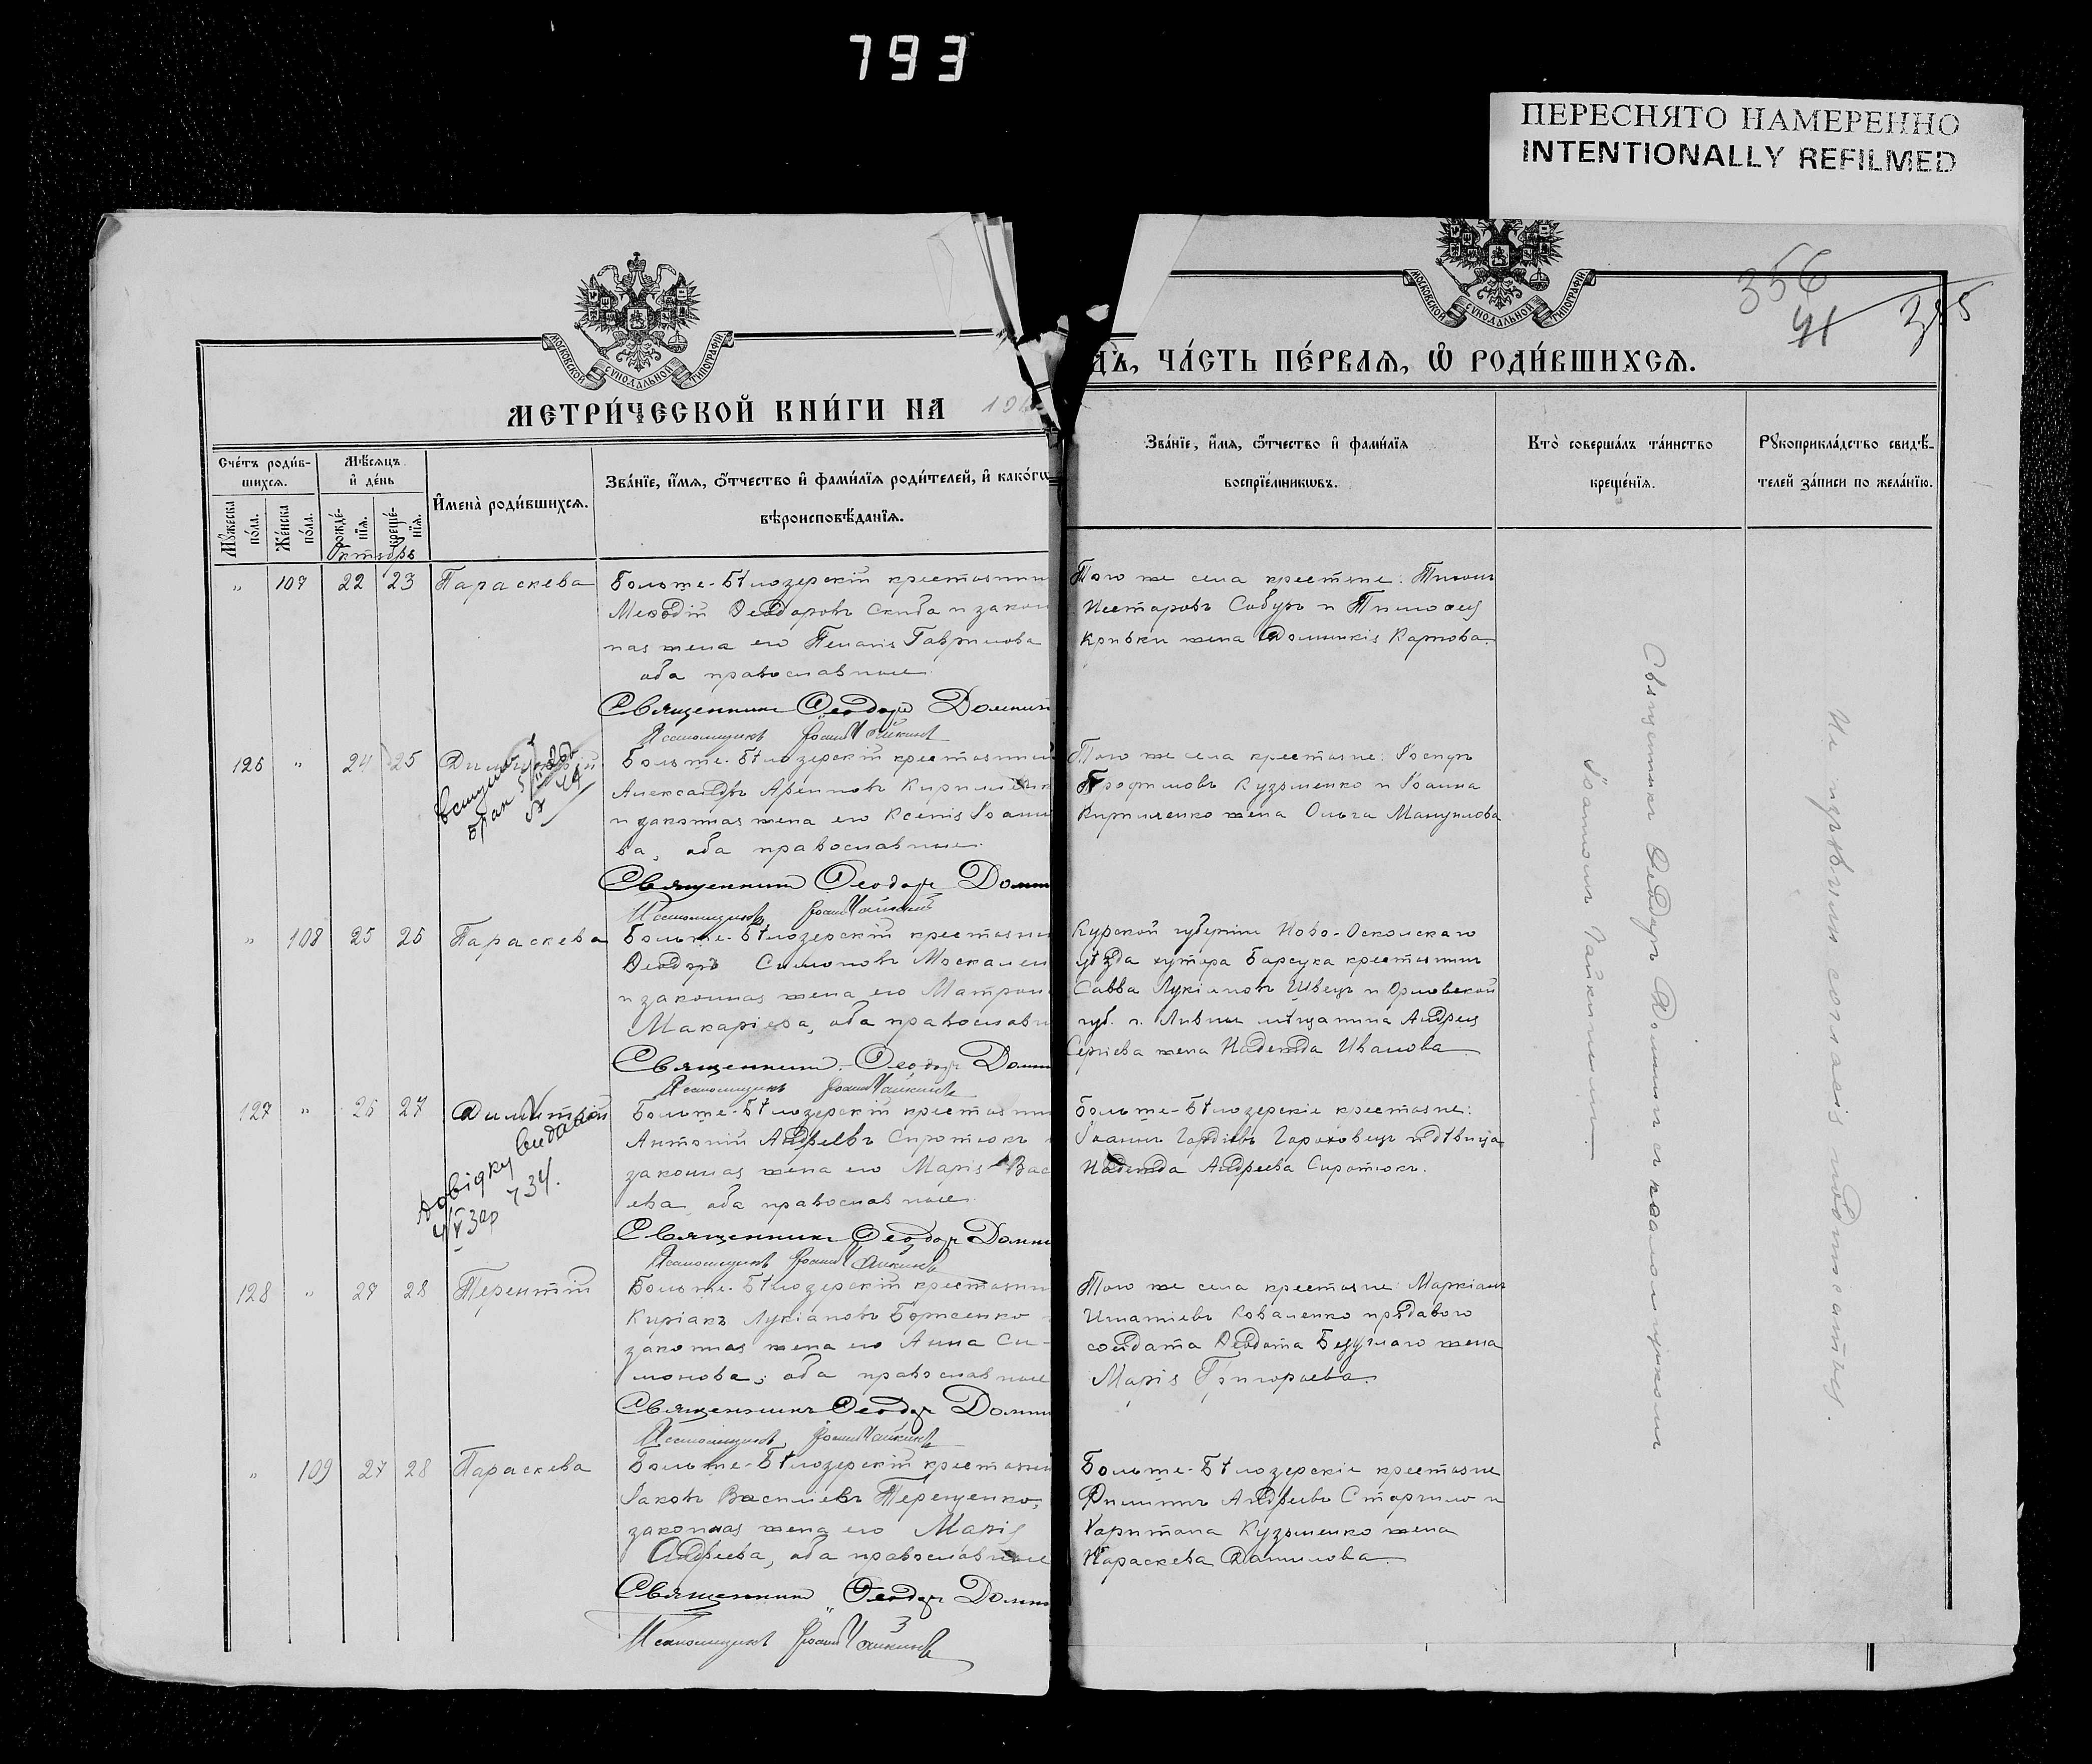 793
ПЕРЕСНЯТО НАМЕРЕННО
INTENTIONALLY REFILMED
356
355
МОСКОВСКОЙ СѴНОДАЛЬНОЙ ТИПОГРАФІИ
МОСКОВСКОЙ СѴНОДАЛЬНОЙ ТИПОГРАФІИ
МЕТРИ́ЧЕСКОЙ КНИ́ГИ НА
ДЪ, ЧА́СТЬ ПЕ́РВАѦ, Ѿ РОДИ́ВШИХСѦ.
Сче́тъ роди́в-
шихсѧ.
Мѣ́сѧцъ
и҆ де́нь
Мꙋ́жеска по́ла.
Же́нска по́ла.
рожде́-нїѧ.
креще́-нїѧ.
И҆мена̀ роди́вшихсѧ.
Зва́нїе, и҆́мѧ, ѻ҆́тчество и҆ фами́лїѧ роди́телей, и҆ како́гѡ
вѣроисповѣ́данїѧ.
Зва́нїе, и҆́мѧ, ѻ҆́тчество и҆ фами́лїѧ
воспрїе́мникѡвъ.
Кто̀ соверша́лъ та́инство
креще́нїѧ.
Рꙋкоприкла́дство свидѣ́-
телей за́писи по жела́нїю.
Октябрь
" 107 22 23 Параскева
Больше-Бѣлозерскій крестьянин
Меѳодій Ѳеодоровъ Скиба и закон
ная жена его Пелагія Гаврилова
оба православные.
Священникъ Ѳеодоръ
Псаломщикъ Іоаннъ Чайкинъ
Того же села крестьяне:
Несторовъ Собуръ и Тимоѳея
жена Домникія Карпова.
126 " 24 25 Димитрій
Больше-Бѣлозерскій крестьянин
Александръ Кирилленк
и законная жена его Ксенія Іоанно
ва, оба православные.
Священникъ Ѳеодоръ
Псаломщикъ Іоаннъ Чайкинъ
Того же села крестьяне: Іосифъ
Трофимовъ Кузьменко и Іоанна
Кирилленко жена Ольга Мануилова
" 108 25 26 Параскева
Больше-Бѣлозерскій крестьянин
Ѳеодоръ Симоновъ Москален
и законная жена его Матрон
Макаріева, оба православн
Священникъ Ѳеодоръ
Псаломщикъ Іоаннъ Чайкинъ
Курской губерніи Ново-Оскольскаго
уѣзда хутора Барсука крестьянинъ
Савва Лукіановъ Швецъ и Орловской
губ. г. Ливны мѣщанина Андрея
Сергіева жена Надежда Иванова
127 " 26 27 Димитрій
Довідку видано
734.
Больше-Бѣлозерскій крестьянин
Антоній Андреевъ Сиротюкъ
законная жена его Марія Вас
льева, оба православные.
Священникъ Ѳеодоръ
Псаломщикъ Іоаннъ Чайкинъ
Больше-Бѣлозерскіе крестьяне:
Іоаннъ Гордіевъ Гороховецъ и дѣвица
Надежда Андреева Сиротюкъ.
128 " 27 28 Терентій
Больше-Бѣлозерскій крестьянин
Киріакъ Лукіановъ Борженко
законная жена его Анна Си-
монова, оба православные
Священникъ Ѳеодоръ
Псаломщикъ Іоаннъ Чайкинъ
Того же села крестьяне: Маркіанъ
Игнатіевъ Коваленко и рядового
солдата Ѳеодота Безуглаго жена
Марія Григорьева.
" 109 27 28 Параскева
Больше-Бѣлозерскій крестьянин
Іаковъ Василіевъ Терещенко,
законная жена его Марія
Андреева, оба православные
Священникъ Ѳеодоръ
Псаломщикъ Іоаннъ Чайкинъ
Больше-Бѣлозерскіе крестьяне
Филиппъ Андреевъ и
Харитона Кузьменко жена
Параскева Данилова
Священникъ Ѳеодоръ съ псаломщикомъ
Іоанномъ Чайкинымъ